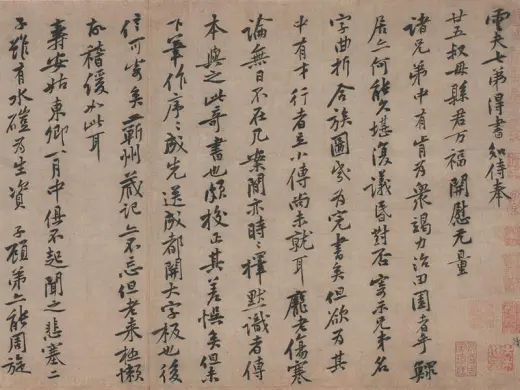 雲夫七弟得書知侍奉
廿五叔母縣君万福開慰无量
諸兄弟中有肯為衆竭力治田園者乎鰥
居亦何能久堪復議昏對否寄示兄弟名
字曲折合族圖歲為完書矣但欲為其
中有才行者立小傳尚未就耳龐老傷寒
論無日不在几案間亦時〻擇默識者傳
本與之此奇書也頗校正其差悮矣但未
下筆作序〻成先送成都開大字板也後
信可寄矣蘄州藏記亦不忘但老來極懶
故稽緩如此耳
壽安姑東卿一月中俱不起聞之悲塞二
子雖有水磑為生資 子顧弟亦能周旋